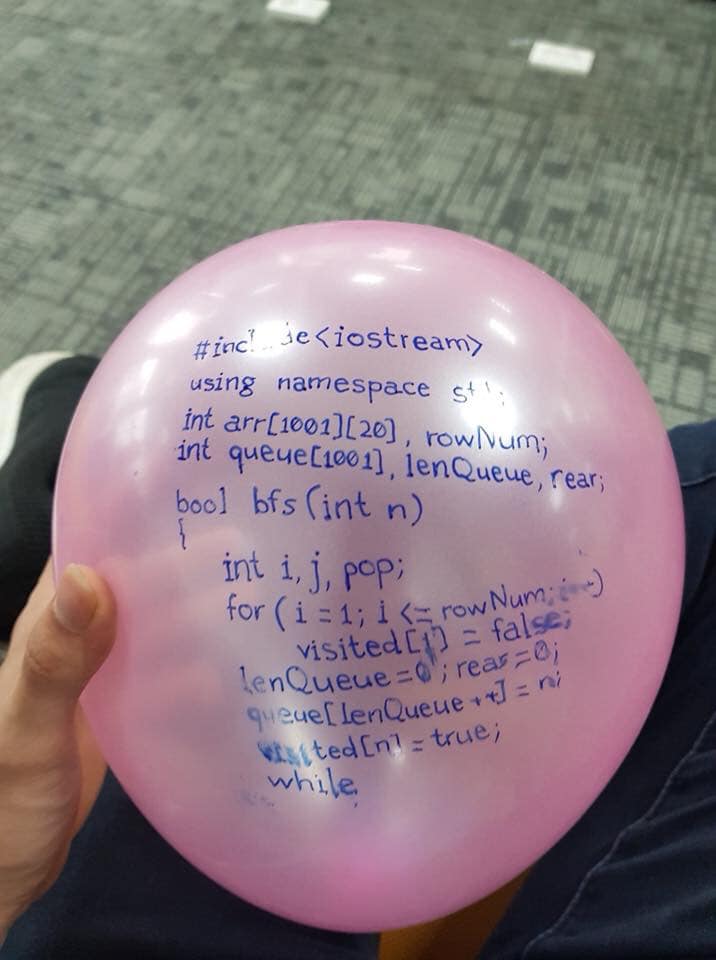 #include<iostream>
using namespace
int arr[1001][20], rowNum;
int queue[1001], lenQueue, rear;
bool bfs(int n)
{
int i, j, pop;
for (i = 1; i <= rowNum;
visited[i] = false;
lenQueue = 0; rear = 0;
queue[lenQueue++] = n;
visited[n] = true;
while